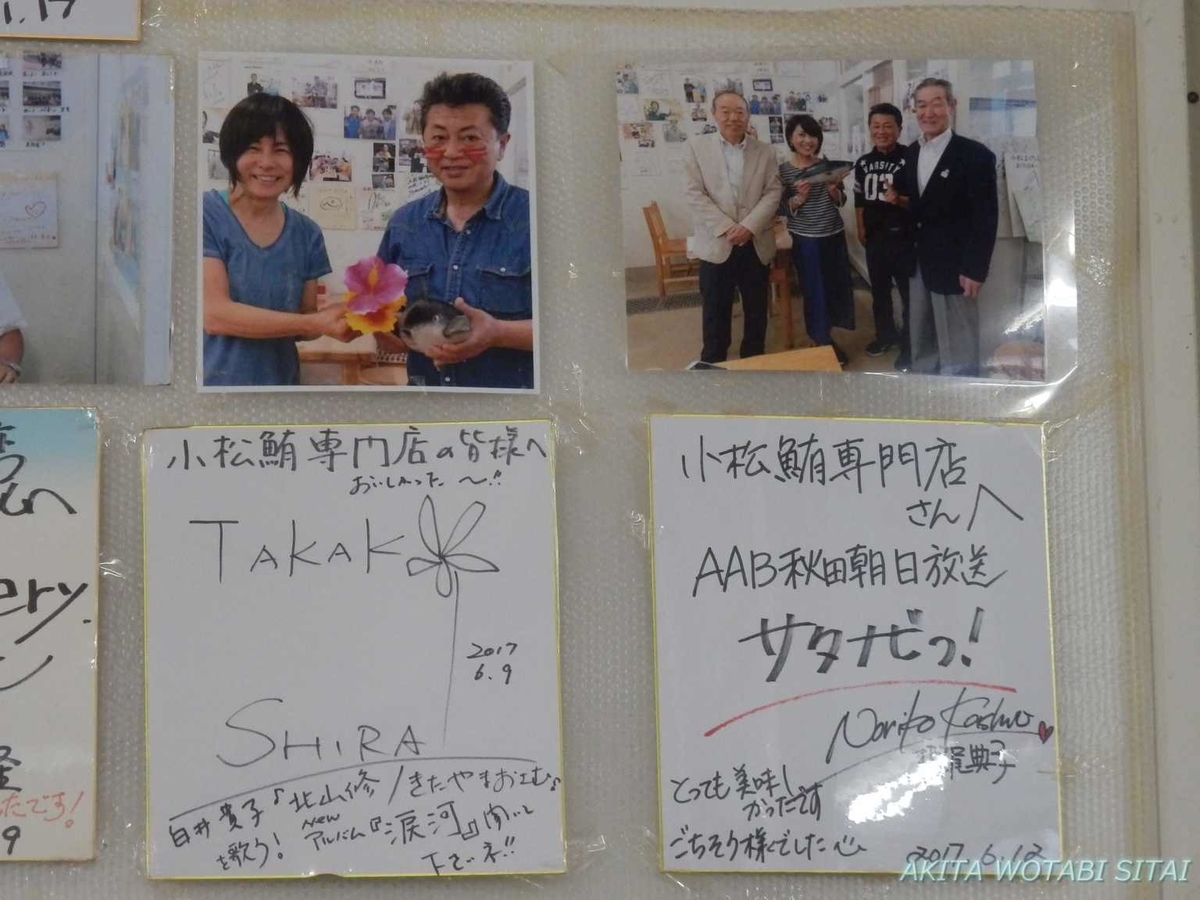 1.17
VARSITY
03
小松鮪専門店の皆様へ
おいしかった〜!!
TAKAK
2017
6.9
SHIRA
白井貴子♪北山修/きたやまおさむ♪
を歌う!
NEW
アルバム『涙河』聞いて
下さいネ!!
小松鮪専門店
さんへ
AAB秋田朝日放送
サタナビっ!
Noriko
典子
とっても美味し
かったです
ごちそう様でした
2017.6.13
ery.
たです!
9
AKITA WOTABI SITAI